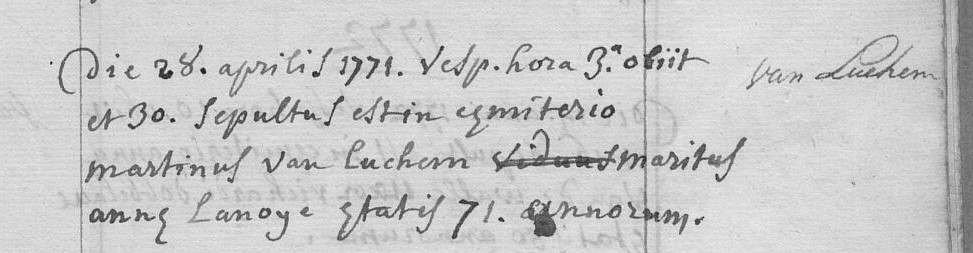 Die 28. aprilis 1771. Vesp. hora 3.a obiit
van Luchem
et 30. sepultus est in cęmiterio
martinus van luchem viduus maritus
annę Lanoye ętatis 71. annorum.